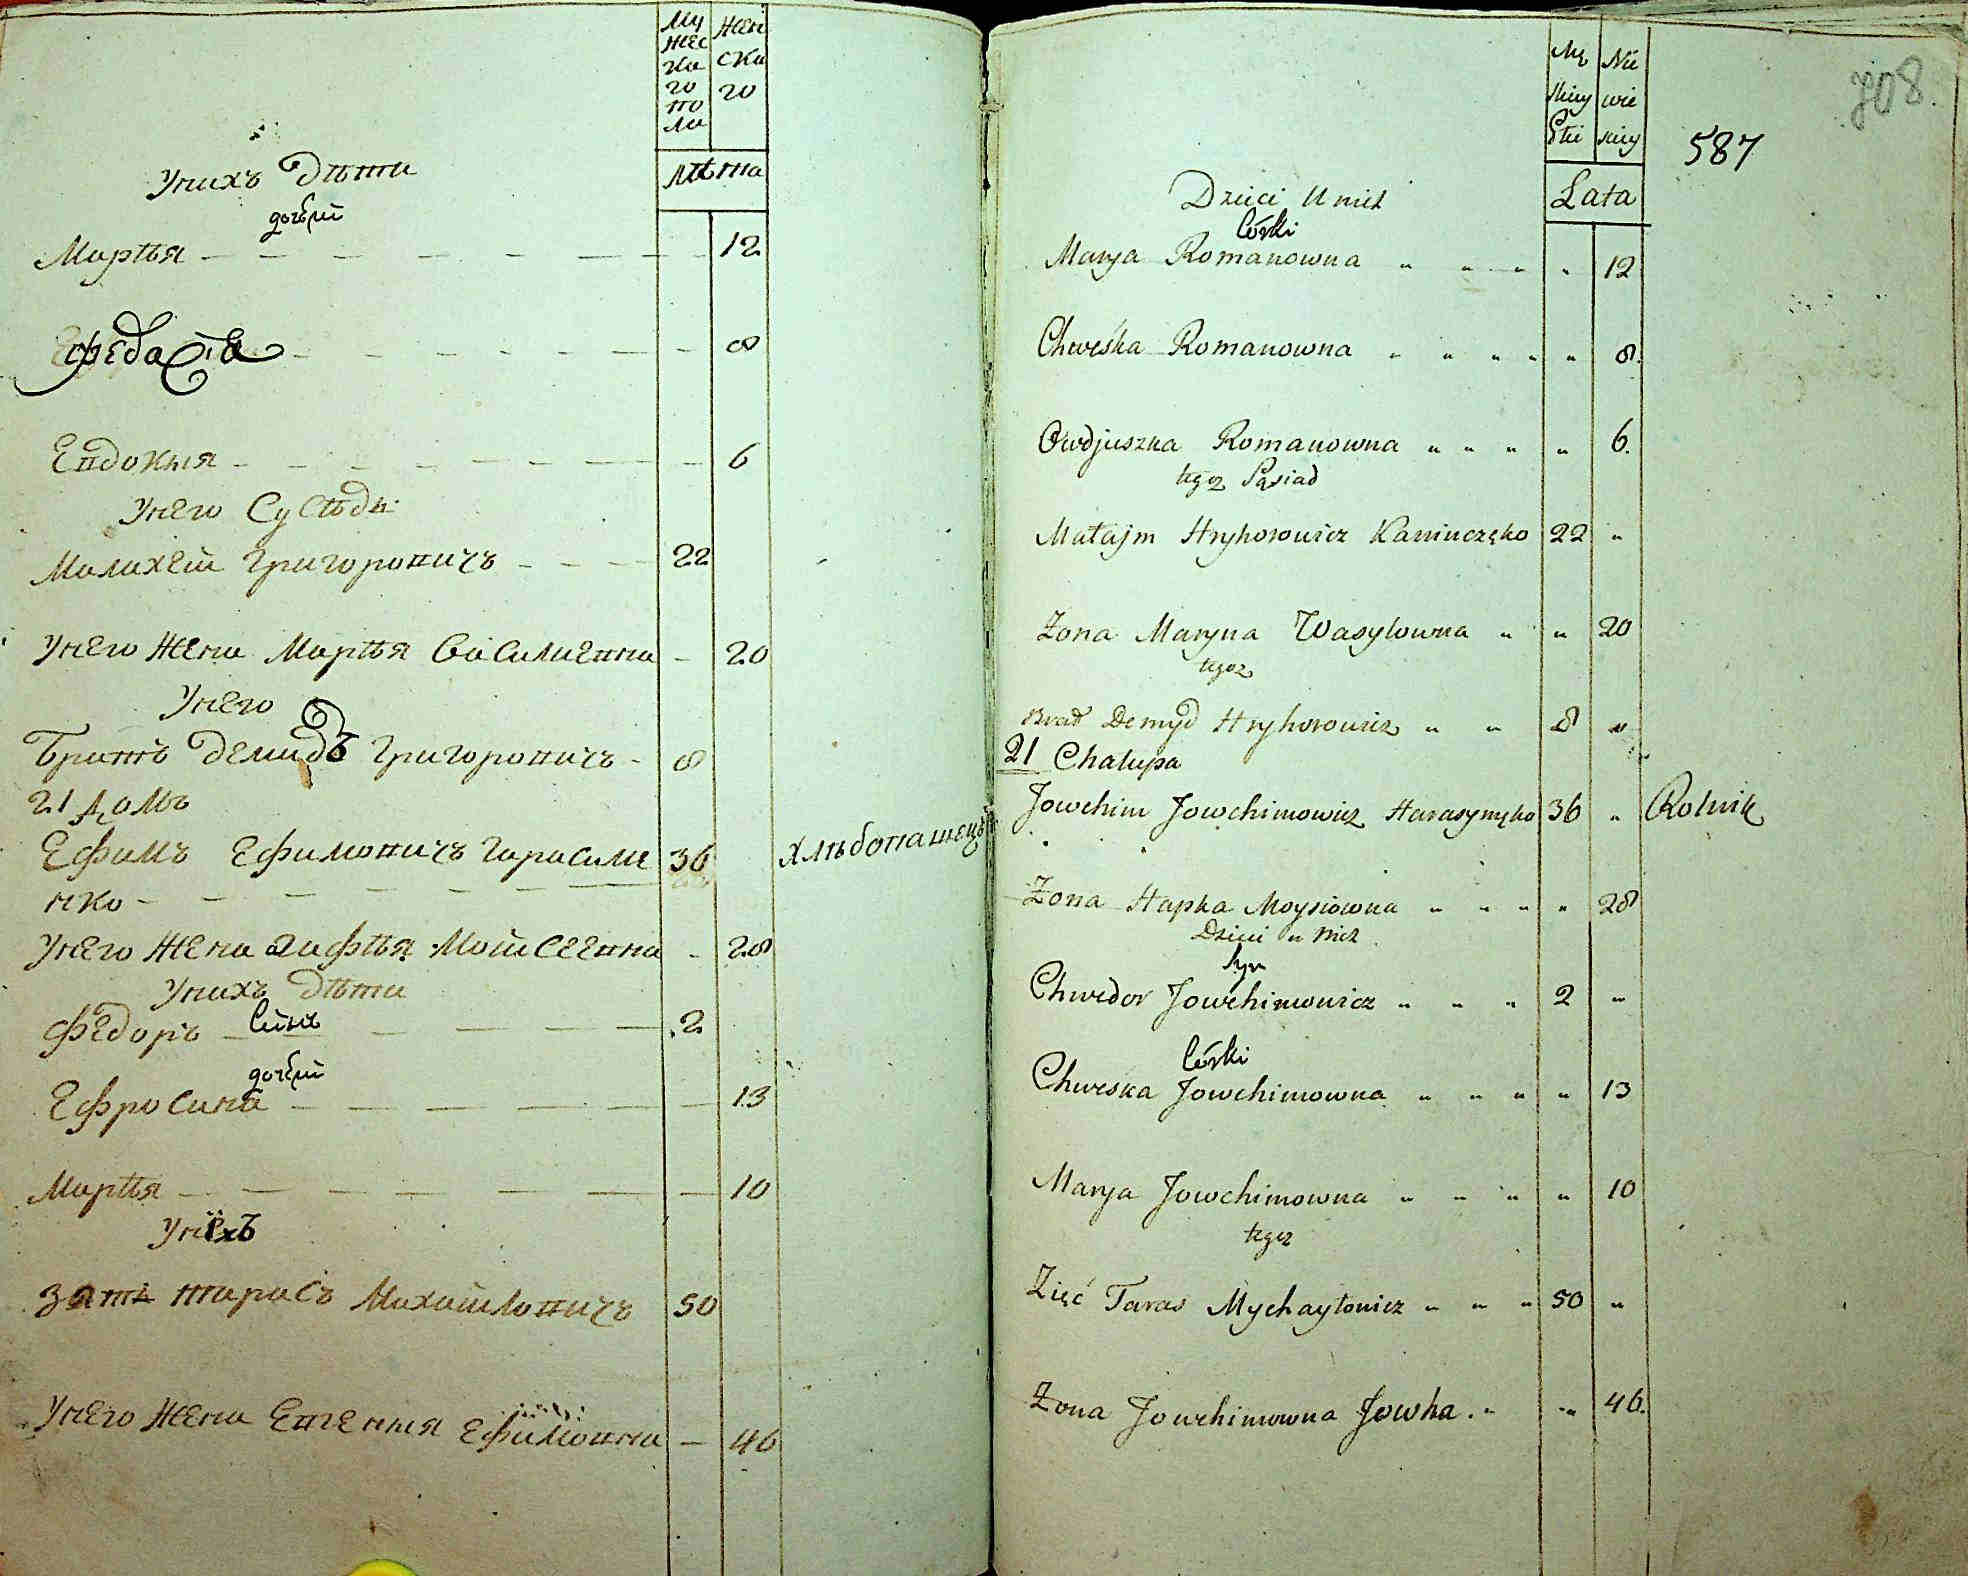 Му Жен
жес ска
ка го
го
по
ла
Лѣта
Унихъ Дѣти
дочери
Марѣя — 12
Федосіа — 8
Евдокия — 6
Унего Сусѣдъ
Малахей Григоровичъ — 22
Унего Жена Марѣя Василиевна — 20
Унего
Братъ Демидъ Григоровичъ - 8
21 Домъ
Ефимъ Ефимовичъ Гарасиме 36 хлѣбопашецъ
нко -
Унего Жена Агафѣя Мойсеевна - 28
Унихъ Дѣти
Федоръ — Синъ — 2
дочери
Ефросина — 13
Марѣя — 10
Унихъ
Зять тарасъ Михайловичъ 50
Унего Жена Евгения Ефимовна — 46
708.
587
Mę Nie
skiey wie
Płci skiey
Lata
Dzieci U nich
Córki
Marya Romanowna " " " " 12
Chweśka Romanowna " " " " " 8.
Owdjuszka Romanowna " " " " 6.
tegoż Sąsiad
Matajm Hryhorowicz Kaninczęko 22 "
Żona Maryna Wasylowna " " 20
tegoż
Brat Demyd Hryhorowicz " " 8 "
21 Chałupa
Jowchim Jowchimowicz Harasymęko 36 " Rolnik
Żona Hapka Moysiowna " " " " 28
Dzieci u nich
Syn
Chwedor Jowchimowicz " " " 2 "
Córki
Chweska Jowchimowna " " " " 13
Marya Jowchimowna " " " " 10
tegoż
Zięć Taras Mychayłowicz " " " 50 "
Żona Jowchimowna Jowha . " " 46.